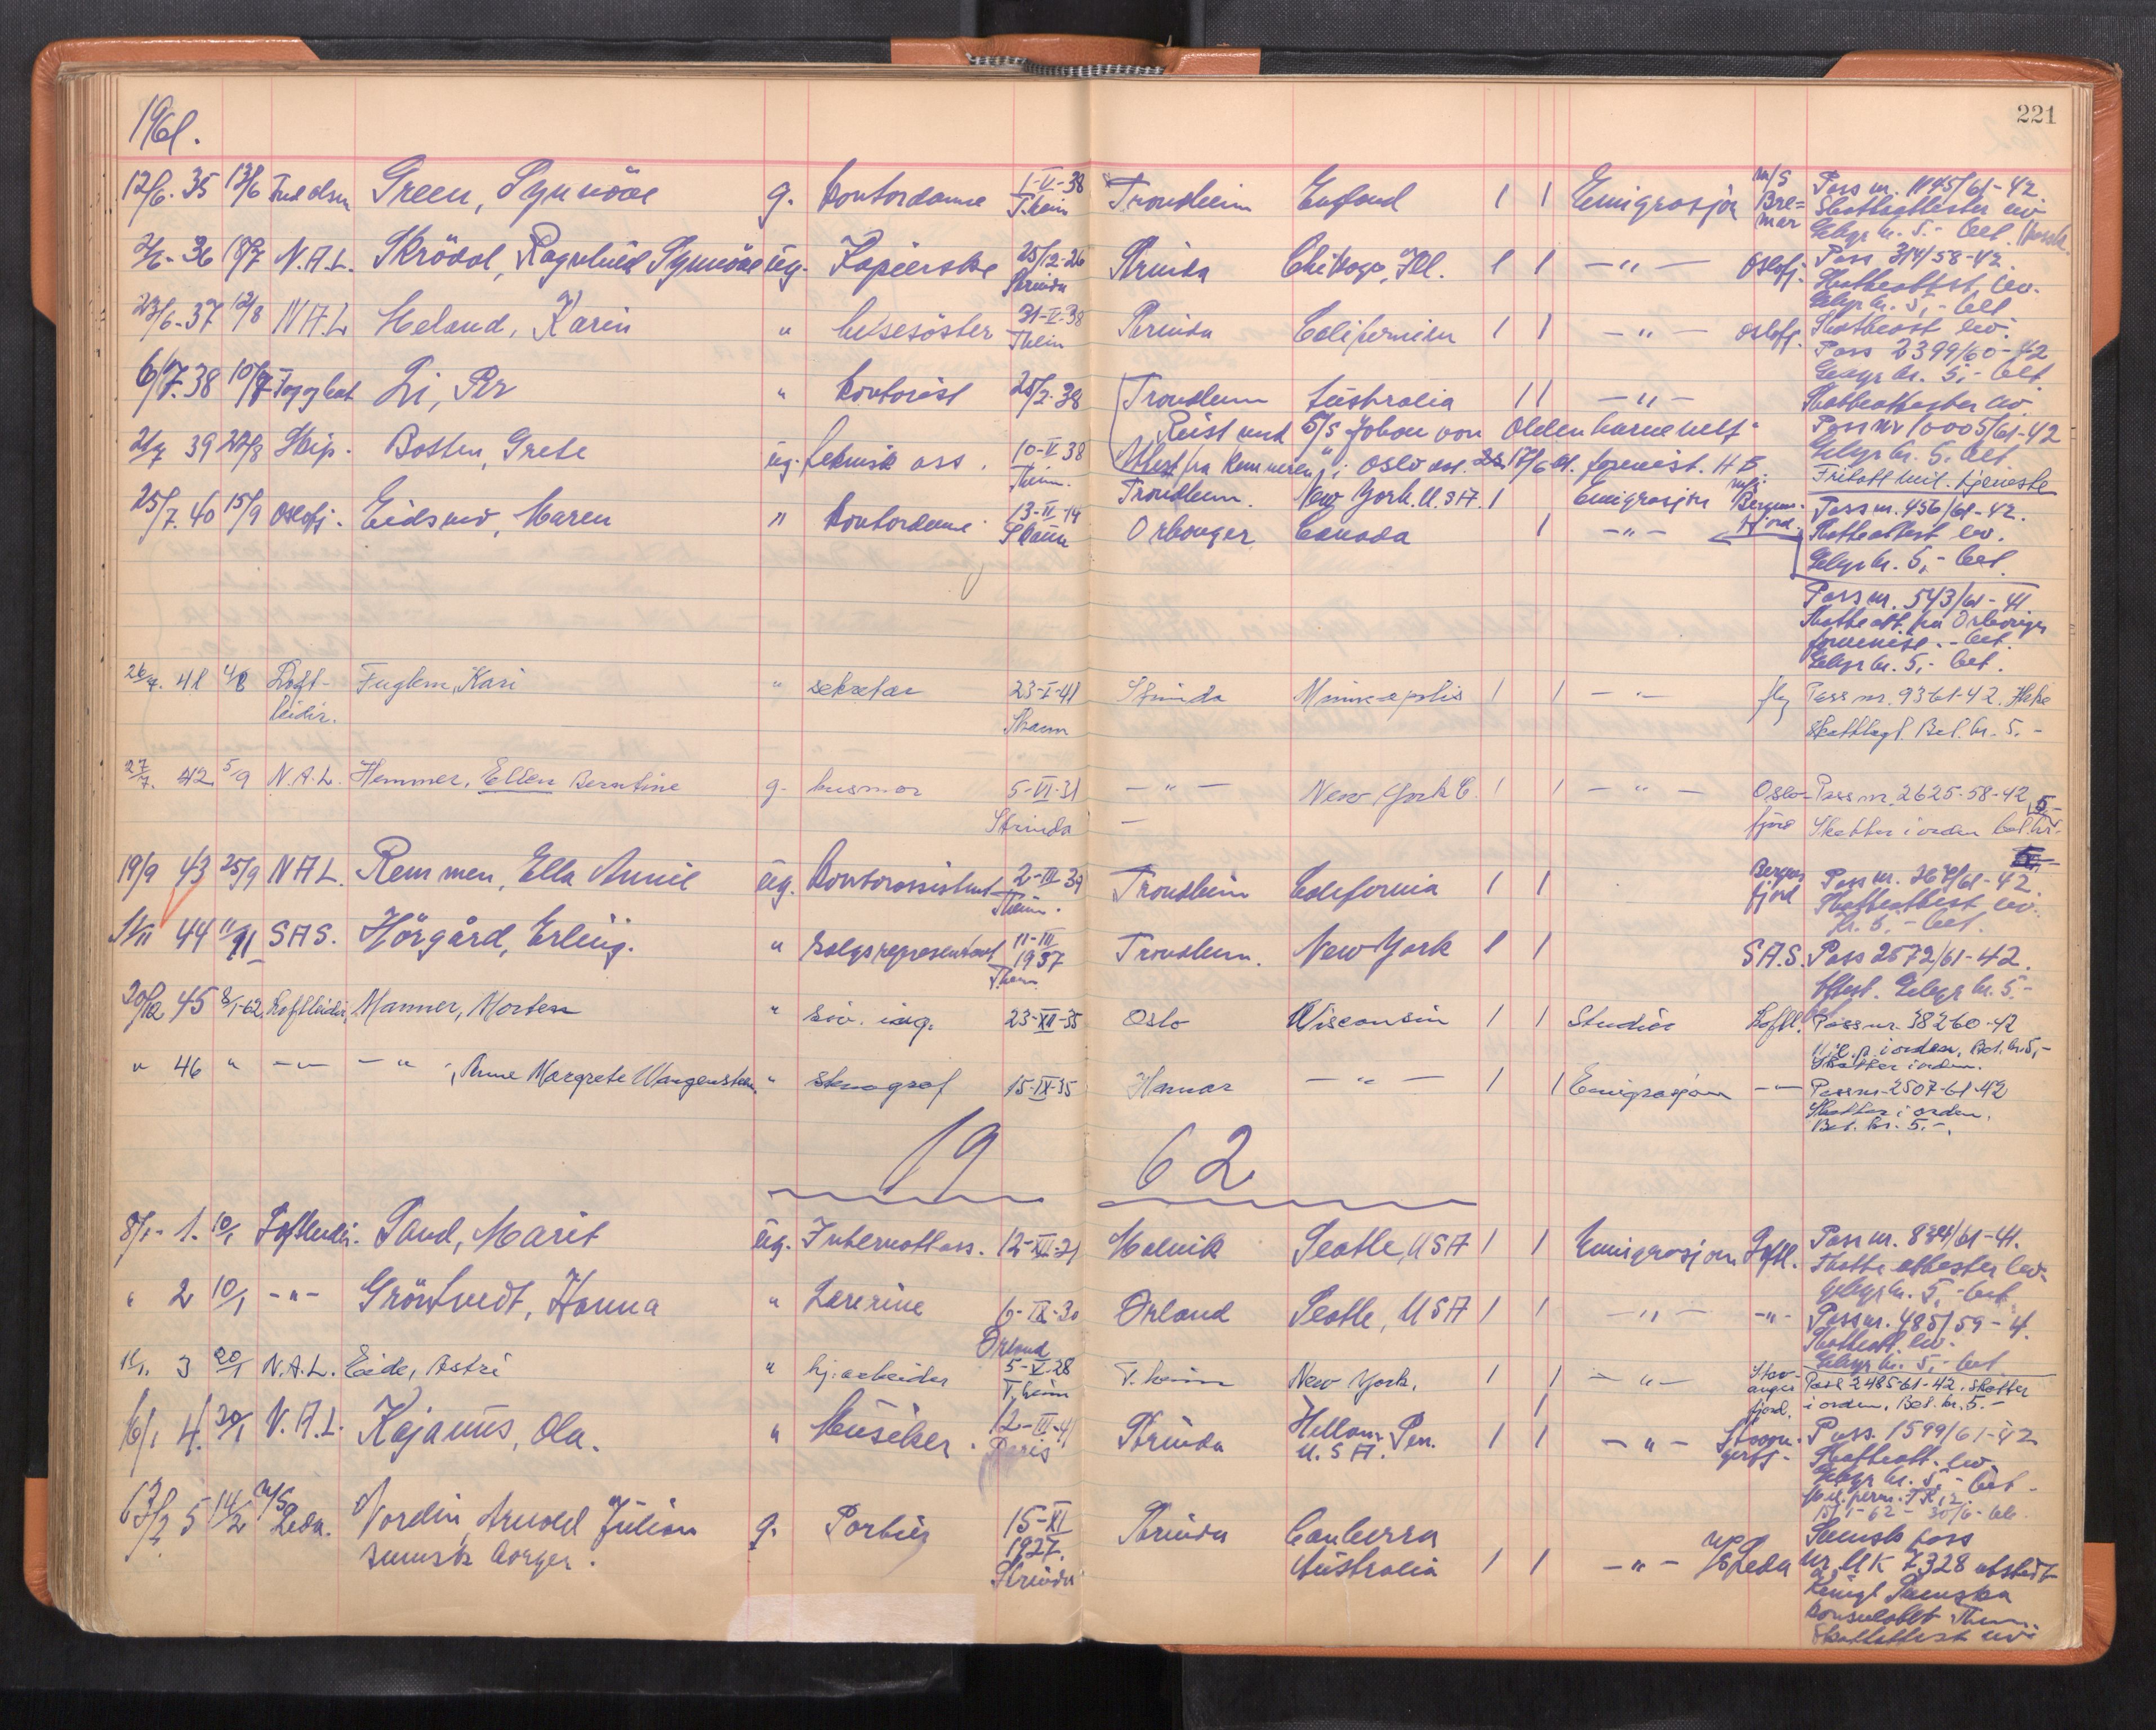 1961.
221
12/6. 35 13/6 Fred Olsen Green, Synnöve g. Kontordame 1-V-38 Trondheim England 1 1 Emigrasjon M/S Bre= Pass nr. 1145/61-42
T.heim mar Skatteattester lev.
Gebyr kr. 5.- bet.
2/6- 36 18/7 N.A.L. Skrödal, Ragnhild Synnöve ug. Kopierske 25/12-26 Strinda Chikago, Ill. 1 1 -"- Oslofj. Pass 314/58-42
Strinda Skatteattest lev.
Gebyr kr. 5,- bet
23/6-37 12/8 N.A.L Meland, Karin " helsesöster 31-V-38 Strinda Californien 1 1 -"- Oslofj. Skatteatt lev.
T.heim Pass 2399/60-42
Gebyr kr. 5,- bet.
6/7.38 10/7 Li, Per " Kontorist 25/2-38 Trondheim Australia 1 1 -"- Skatteattester lev.
Reist med S/S Johan van Oldenbarnevelt Pass nr 10005/61-42
21/7 39 22/8 Skip. Botten, Grete ug. teknisk ass. 10-V-38 Attest fra Kemneren i Oslo dat. 17/6-61. forevist. H B. Gebyr 5. bet
T.heim. Fritatt mil. tjeneste
Trondheim. New York. U.S.A. 1 Emigrasjon Bergens- Pass nr. 456/61-42.
25/7. 40 15/9 Oslofj. Eidsmo, Maren " Kontordame 13-II-14 Orkanger Canada 1 -"- fjord. Skatteattest lev.
Gebyr kr. 5,- bet.
Pass nr. 543/61-41
Skatteatt. fra Orkanger
forevist.- bet.
Gebyr kr. 5,- bet.
26/7. 41 4/8 Loft- Fuglem, Kari " sekretær 23-I-41 Strinda Minneapolis 1 1 -"- fly Pass nr. 9361-42. Ikke
leidir. Skattlagt. Bet. kr. 5.-
27/7. 42 5/9 N.A.L. Hemmer, Ellen Berntine g. husmor 5-VI-31 -"- New York C. 1 1 -"- Oslo- Pass nr. 2625-58-42
Strinda fjord Skatter i orden bet. kr. 5-
19/9 43 25/9 NAL. Remmen, Ella Annie ug. Kontorassistent 2-III-39 Trondheim California 1 1 Bergens Pass nr. 267/61-42.
T.heim. fjord Skatteattest lev.
Kr. 5,- bet.
1/11 44 11/11 SAS. Hörgård, Erling. " Salgsrepresentant 11-III Trondheim. New York 1 1 S.A.S. Pass 2572/61-42.
1937
T.heim Attest. Gebyr kr. 5.-
20/12 45 8/1-62 Loftleidir, Manner, Morten " siv. ing. 23-XII-35 Oslo Wisconsin 1 1 Studier Loftl. Pass nr. 38260-42
Mil. p. i orden, Bet. kr. 5,-
Skatter i orden.
" 46 " -"- -"-, Anne Margrete Wangensteen " stenograf 15-IX-35 Hamar -"- 1 1 Emigrasjon -"- Pass nr 2507-61-42
Skatter i orden.
Bet. kr. 5.-.
19 62
8/1- 1. 10/1 Loftleidir. Sand, Marit ug. Internatass. 12-XII-21 Malvik Seatle, USA 1 1 Emigrasjon Loftl. Pass nr. 8341/61-41.
Skatteattester lev.
Gebyr kr. 5,- bet.
" 2 10/1 -"- Gröntvedt, Hanna " Lærerine 6-IX-30 Örland Seatle, USA 1 1 -"- -"- Pass nr. 485/59-4.
Örland Skatteatt. lev.
Gebyr kr. 5,- bet
11/1. 3 20/1 N.A.L. Eide, Astri " hj.arbeider 5-V-28 T.heim New York. 1 1 -"- Stav- Pass 2485-61-42. Skatter
T.heim anger
fjord. i orden, Bet. kr. 5.-
16/1 4. 20/1 N.A.L. Kajanus, Ola. " Musiker. 12-III-41 Strinda Penn. 1 1 -"- Stavan- Pass. 1599/61-42
Paris U.S.A. gerfj. Skatteatt. lev
Gebyr kr. 5- bet-
Mil. perm.
13/2 5 14/2 M/S Leda. Nordin, Arnold Julian g. Portier 15-XI Strinda Canberra Svensk pass
svensk borger. 1927. Australia 1 1 -"- Leda nr. UK 7328 utstedt
Strinda Kungl. Svenska
Konsulatet T.heim.
Skatteattest lev.